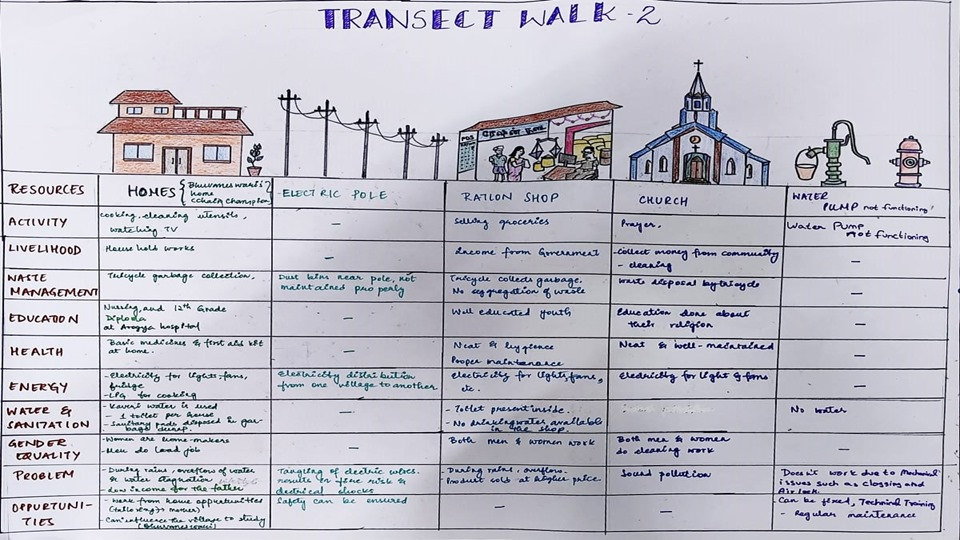 TRANSECT WALK - 2
PDS
RESOURCES
HOMES { Bhuvaneswari's
home
ELECTRIC POLE
RATION SHOP
CHURCH
WATER
PUMP not functioning
ACTIVITY
cooking, cleaning utensils,
watching TV
—
Selling groceries
Prayer,
Water Pump
not functioning
LIVELIHOOD
House hold works
—
Income from Government
- collect money from community
- cleaning
—
WASTE
MANAGEMENT
Tricycle garbage collection,
Dust bins near pole, not
maintained properly
Tricycle collects garbage.
No seggregation of waste
waste disposal by tricycle
—
EDUCATION
Nursing, and 12th Grade
Diploma
at Arogya hospital
—
Well educated youth
Education done about
their religion
—
HEALTH
Basic medicines & first aid kit
at home.
—
Neat & hygience
Proper maintenance
Neat & well-maintained
—
ENERGY
- Electricity for lights, fans,
fridge
- LPG for cooking
Electricity distribution
from one village to another
Electricity for lights, fans,
etc.
Electricity for light & fans
—
WATER &
SANITATION
- Kaveri water is used
- 1 toilet per house
- Sanitary pads disposed in gar-
bage dump.
—
- Toilet present inside.
- No drinking water available
in the shop.
No water
GENDER
EQUALITY
- Women are home-makers
- Men do
job
—
Both men & women work
Both men & women
do cleaning work
—
PROBLEM
- During rains, overflow of water
& water stagnation
- Low income for the father
Tangling of electric wires.
results in fire risk &
electrical shocks
- During rains, overflow.
- Product sold at higher price
Sound pollution
Doesn't work due to Mechanical
issues such as clossing and
Air lock.
OPPURTUNI-
TIES
- Work from home oppurtunities
mother)
- Can influence the village to study
(Bhuvaneswari)
Safety can be ensured
—
—
- Can be fixed, Technical Training
- Regular maintenance